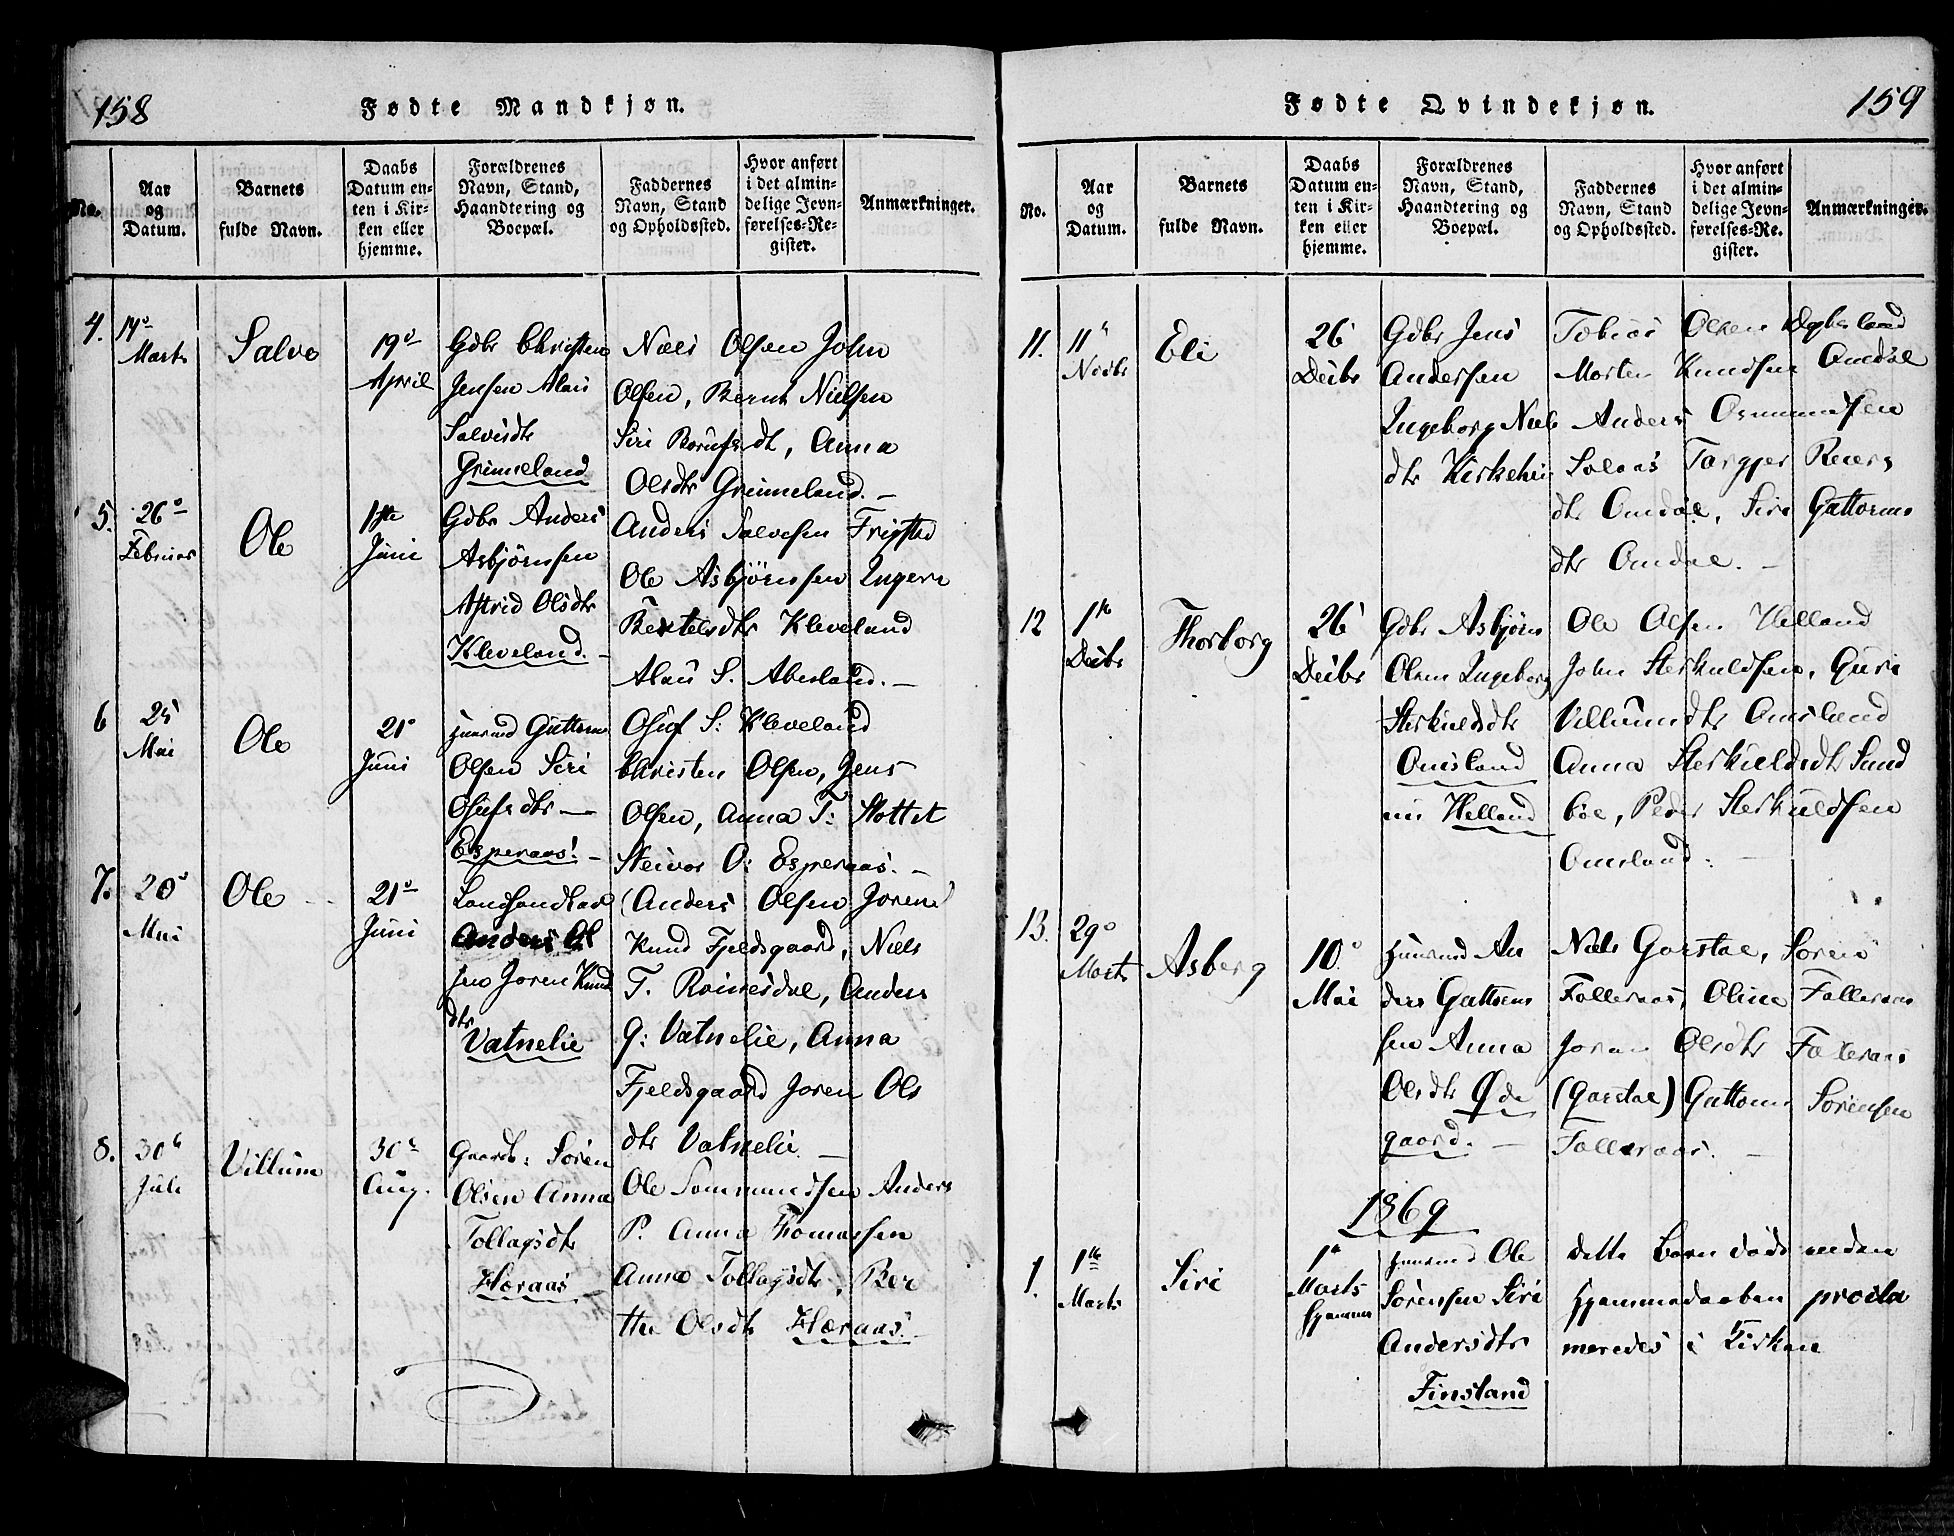 158
Fødte Mandkjøn.
No.
Aar
og
Datum.
Barnets
fulde Navn.
Daabs
Datum en-
ten i Kir-
ken eller
hjemme.
Forældrenes
Navn, Stand,
Haandtering og
Boepæl.
Faddernes
Navn, Stand
og Opholdssted.
Hvor anført
i det almin-
delige Jevn-
førelses-Re-
gister.
Anmærkninger.
4.
14
Marts
Salve
19
April
Gdbr Christen
Jensen Alai
Salvesdtr
Grimeland
Niels Olsen John
Olsen, Bernt Nielsen
Siri dt, Anna
Olsdtr Grimeland. –
5.
26
Februar
Ole
1ste
Juni
Gdbr Anders
Asbjørnsen
Astrid Olsdtr
Kleveland. –
Anders Salvesen Fripstad
Ole Asbjørnsen Inger
Bertelsdtr Kleveland
Alau S. Abesland. –
6
25
Mai
Ole
21
Juni
Huusmd Guttorm
Olsen Siri
Osufsdtr –
Esperaas! –
Osuf S: Kleveland
Christen Olsen, Jens
Olsen, Anna T: Stottet
Steivor O: Esperaas. –
7.
20
Mai
Ole
21
Juni
Landhandlar
Anders Ol
sen Joren Knud
dtr
Vatnelie
(Anders Olsen Joren
Knud Fjeldsgaard, Niels
T. Roinesdal, Anders
G: Vatnelie, Anna
Fjeldsgaard Joren Ols
dtr Vatnelie. –
8.
30
Juli
Villum
30
Aug.
Gaardb: Sören
Olsen Anna
Tollagsdtr
Høraas
Ole Sommundsen Anders
P. Anna Thomassen
Anna Tollagsdtr, Ber
the Olsdtr Høraas.
159
Fødte Qvindekjøn.
No.
Aar
og
Datum.
Barnets
fulde Navn.
Daabs
Datum en-
ten i Kir-
ken eller
hjemme.
Forældrenes
Navn, Stand,
Haandtering og
Boepæl.
Faddernes
Navn, Stand
og Opholdssted.
Hvor anført
i det almin-
delige Jevn-
førelses-Re-
gister.
Anmærkninger.
11.
11
Novbr
Eli
26
Decbr
Gdbr Jens
Andersen
Ingeborg Niels
dtr Kirkehei
Tobias Olsen Døbesland
Morten Knudsen Omdal
Anders Osmundsen
Solaas Torgjer Reiers
dtr Omdal, Siri Guttorms
dtr Omdal. –
12
1
Decbr
Thorborg
26
Decbr
Gdbr Asbjørn
Olsen Ingeborg
Sterkuldsdtr
Omsland
nu Helland
Ole Olsen Helland
John Sterkuldsen, Guri
Villumdtr Omsland
Anna Sterkuldsdtr Sund
böe, Peder Sterkuldsen
Omsland. –
13.
29
Marts
Asberg
10
Mai
Huusmd An
ders Guttorm
sen Anna
Olsdtr Øde
gaard. –
Niels Garstal, Sören
Falleraas, Oline Falleraas
Joran Olsdtr Falleraas
(Garstal) Guttorm Sörensen
Falleraas. –
1869
1.
1
Marts
Siri
1
Marts
Hjemme
Huusmd Ole
Sörensen Siri
Andersdtr
Finsland
dette Barn döde inden
Hjemmedaaben procla
meredes i Kirken